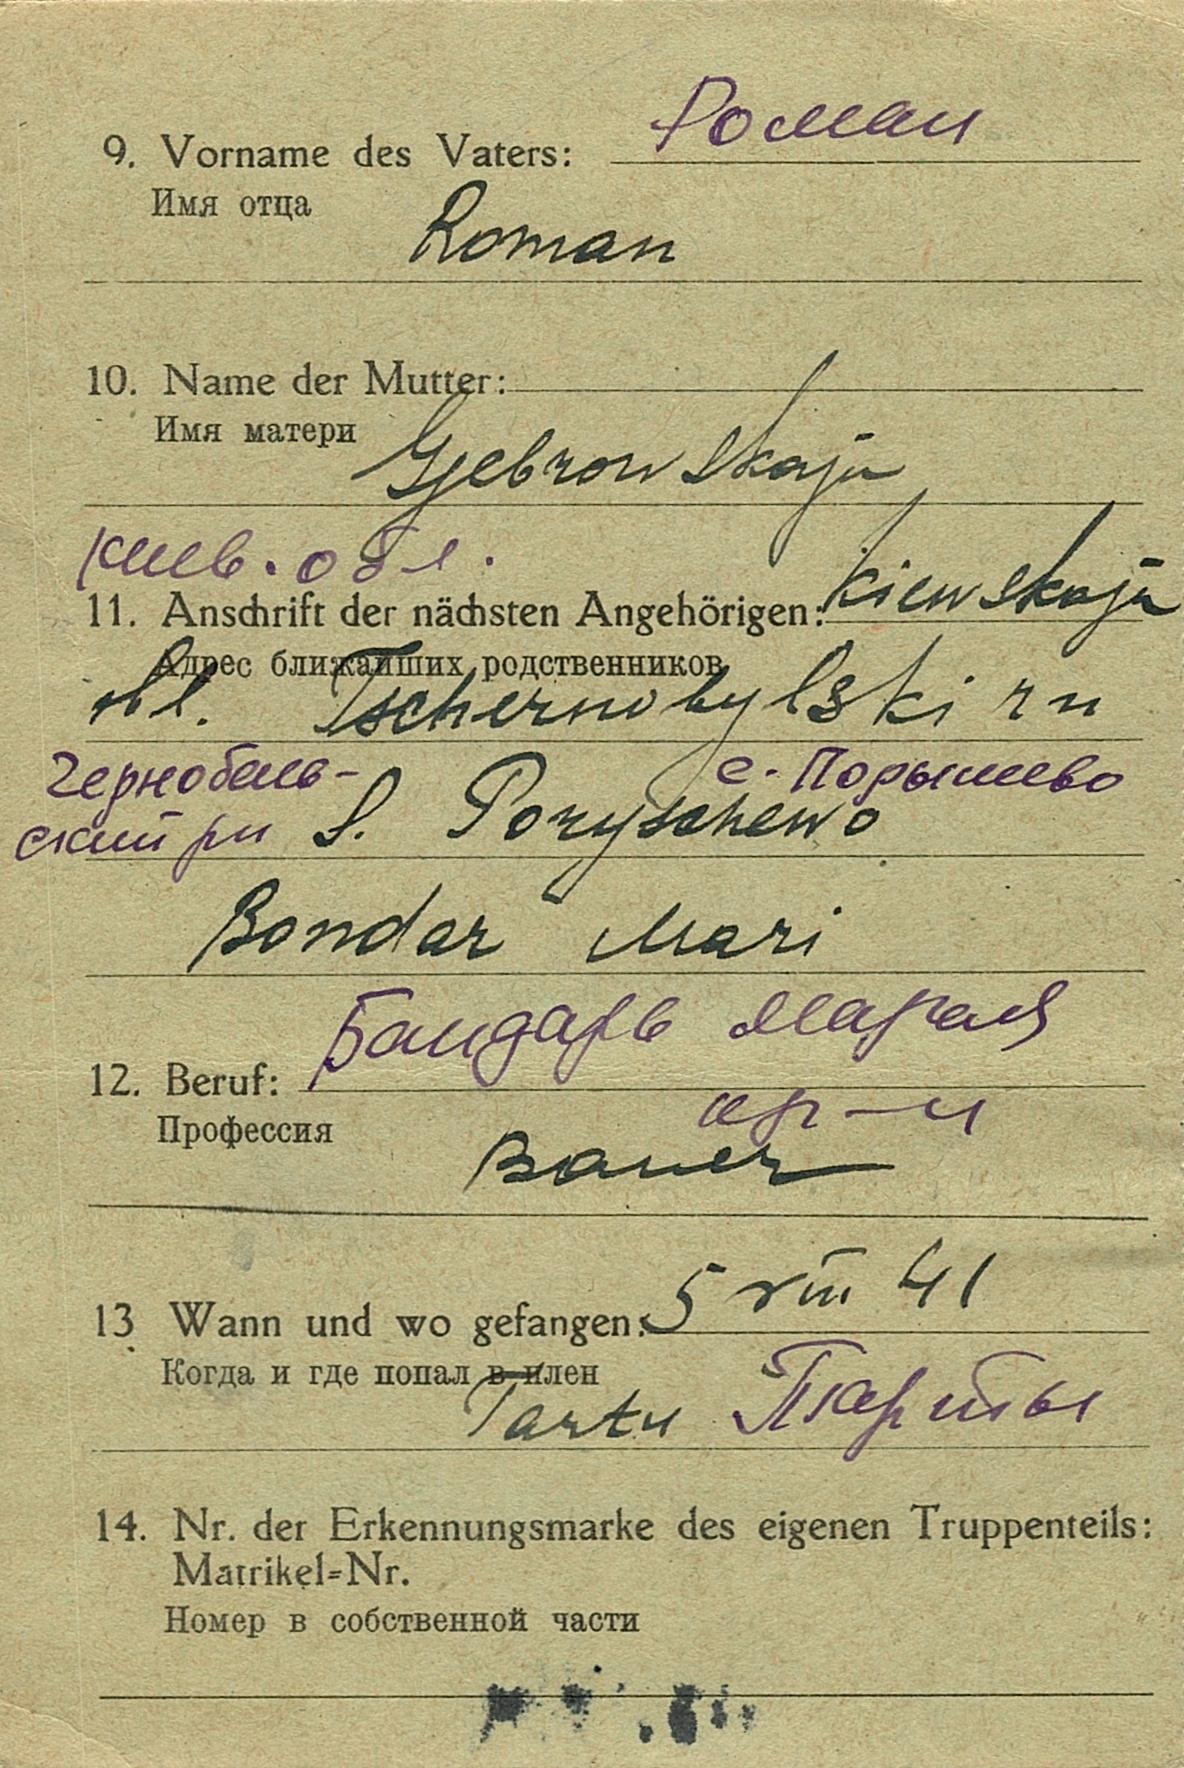 Роман
9. Vorname des Vaters:
Имя отца
Roman
10. Name der Mutter:
Имя матери
Gjebrowskaja
Киев. обл.
11. Anschrift der nächsten Angehörigen: Kiewskaja
Адрес ближайших родственников
obl. Tschernobylski rn
Чернобыль- с. Порышево
ский рн S. Poryschewo
Bondar Mari
Бандарь Мария
12. Beruf:
Профессия
кр-н
Bauer
13. Wann und wo gefangen: 5 VIII 41
Когда и где попал в плен
Tartu Тарты
14. Nr. der Erkennungsmarke des eigenen Truppenteils:
Matrikel=Nr.
Номер в собственной части